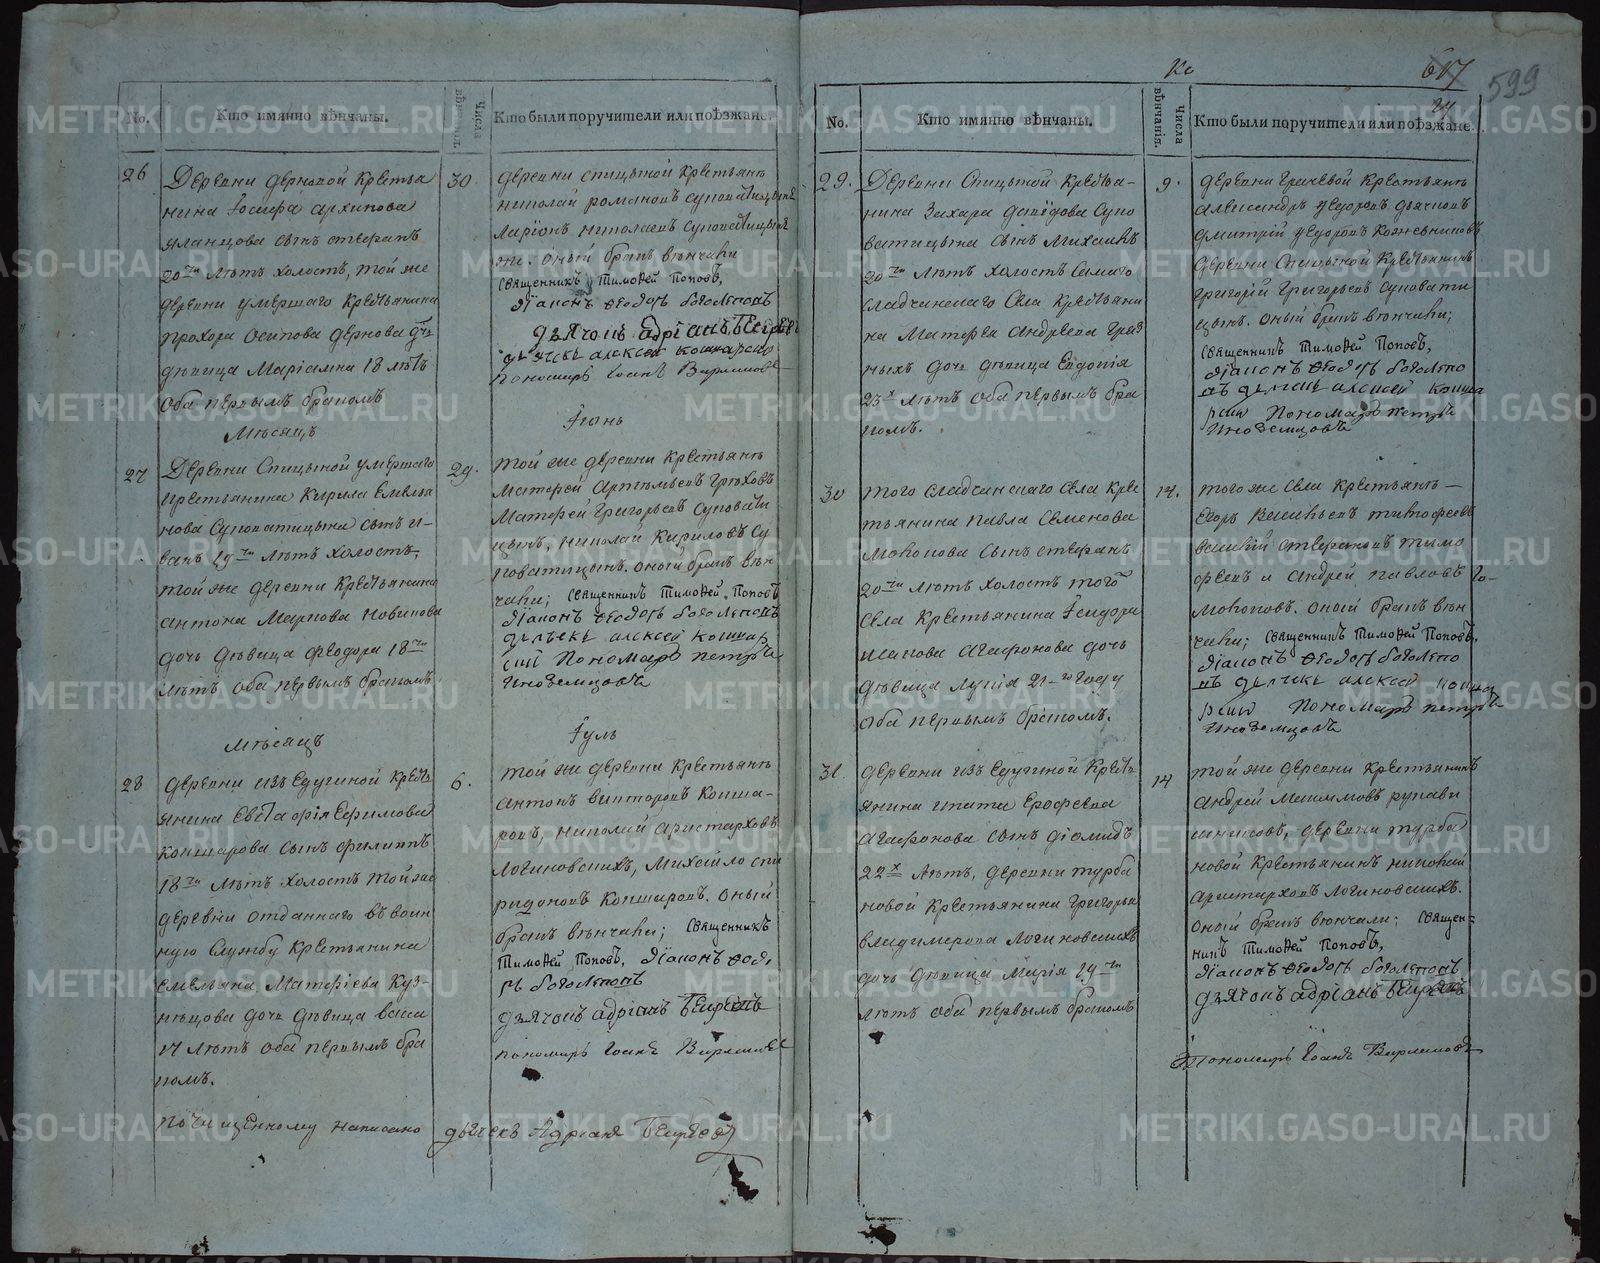 No.
Кто имянно вѣнчаны.
Числа вѣнчанія.
Кто были поручители или поѣзжане.
26
Деревни Дерновой крестья
нина Іосифа Архипова
сынъ Стефанъ
20ти лѣтъ холостъ, той же
деревни умершаго крестьянина
Прохора Осипова Дернова дочь
девица Маріамна 18 лѣтъ
оба первымъ бракомъ
30.
деревни Спицыной крестьянъ
Николай Романовъ Суповатицынъ
Ларіонъ Николаевъ Суповатицынъ
же. оный бракъ вѣнчали
священникъ Тимофей Поповъ,
діаконъ Феодоръ Боголеповъ
дьячокъ Адріанъ
дьячекъ Алексей
пономарь Іоаннъ
Мѣсяцъ
Іюнь
27
Деревни Спицыной умершаго
крестьянина Кирила Емелья
нова Суповатицына сынъ И-
ванъ 19ти лѣтъ холостъ,
той же деревни крестьянина
Антона Маркова Новикова
дочь девица Феодора 18ти
лѣтъ оба первымъ бракомъ
29.
той же деревни крестьянъ
Матфей Артемьевъ Грюховъ
Матфей Григорьевъ Суповати
цынъ, Николай Кириловъ Су
поватицынъ. оный бракъ вѣн
чали; священникъ Тимофей Поповъ
діаконъ Феодоръ Боголеповъ
дьячекъ Алексей Кошкар
ской Пономарь Петръ
Иноземцовъ
Мѣсяцъ
Іуль
28
деревни Изъедугиной кресть
янина Евстафія Ефимова
Кокшарова сынъ Филиппъ
18ти лѣтъ холостъ той же
деревни отданнаго въ воин
ную службу крестьянина
Емельяна Матфіева Куз-
нецова дочь девица Васса
17 лѣтъ оба первымъ бра
комъ.
6.
той же деревни крестьянъ
Антонъ Викторовъ Кокша-
ровъ, Николай Аристарховъ
Логиновскихъ, Михайло Спи
ридоновъ Кокшаровъ. оный
бракъ вѣнчали; священникъ
Тимофей Поповъ, діаконъ Феодо
ръ Боголеповъ
дьячокъ Адріанъ
пономарь Іоаннъ
по чищенному написано
дьячекъ Адріанъ
Ко
617
599
No.
Кто имянно вѣнчаны.
Числа вѣнчанія.
Кто были поручители или поѣзжане.
29.
Деревни Спицыной крестья-
нина Захара Давыдова Супо
ватицына сынъ Михаилъ
20ти лѣтъ холостъ самаго
Сладчинскаго села крестьяни
на Матфея Андреева Гряз
ныхъ дочь девица Евдокія
23х лѣтъ оба первымъ бра
комъ.
9.
деревни Грачевой крестьянъ
Александръ Федоровъ Дьячковъ
Дмитрій Федоровъ Кожевниковъ
деревни Спицыной крестьянинъ
Григорій Григорьевъ Суповати
цынъ. оный бракъ вѣнчали;
священникъ Тимофей Поповъ,
діаконъ Феодоръ Боголепо
въ дьячекъ Алексей Кошка
рской Пономарь Петръ
Иноземцовъ
30
того Сладчинскаго села кре
стьянина Павла Семенова
сынъ Стефанъ
20ти лѣтъ холостъ того
села крестьянина Исидора
Агафонова дочь
девица Лукія 21-го году
оба первымъ бракомъ.
14.
того же села крестьянъ
Егоръ Васильевъ
Стефановъ Тимо
феевъ и Андрей Павловъ
оный бракъ вѣн
чали; священникъ Тимофей Поповъ,
діаконъ Феодоръ Боголепо
въ дьячекъ Алексей Кошка
рской Пономарь Петръ
Иноземцовъ
31
деревни Изъедугиной кресть
янина Ипата Ерофеева
Агафонова сынъ Діомидъ
22х лѣтъ, деревни Турба
новой крестьянина Григорья
Владимерова Логиновскихъ
дочь девица Марія 19ти
лѣтъ оба первымъ бракомъ
14
той же деревни крестьянинъ
Андрей Максимовъ Рукави
шниковъ, деревни Турба
новой крестьянинъ Николай
Аристарховъ Логиновскихъ.
оный бракъ вѣнчали; священ-
никъ Тимофей Поповъ,
діаконъ Феодоръ Боголеповъ
дьячокъ Адріанъ
Пономарь Іоаннъ
METRIKI.GASO-URAL.RU